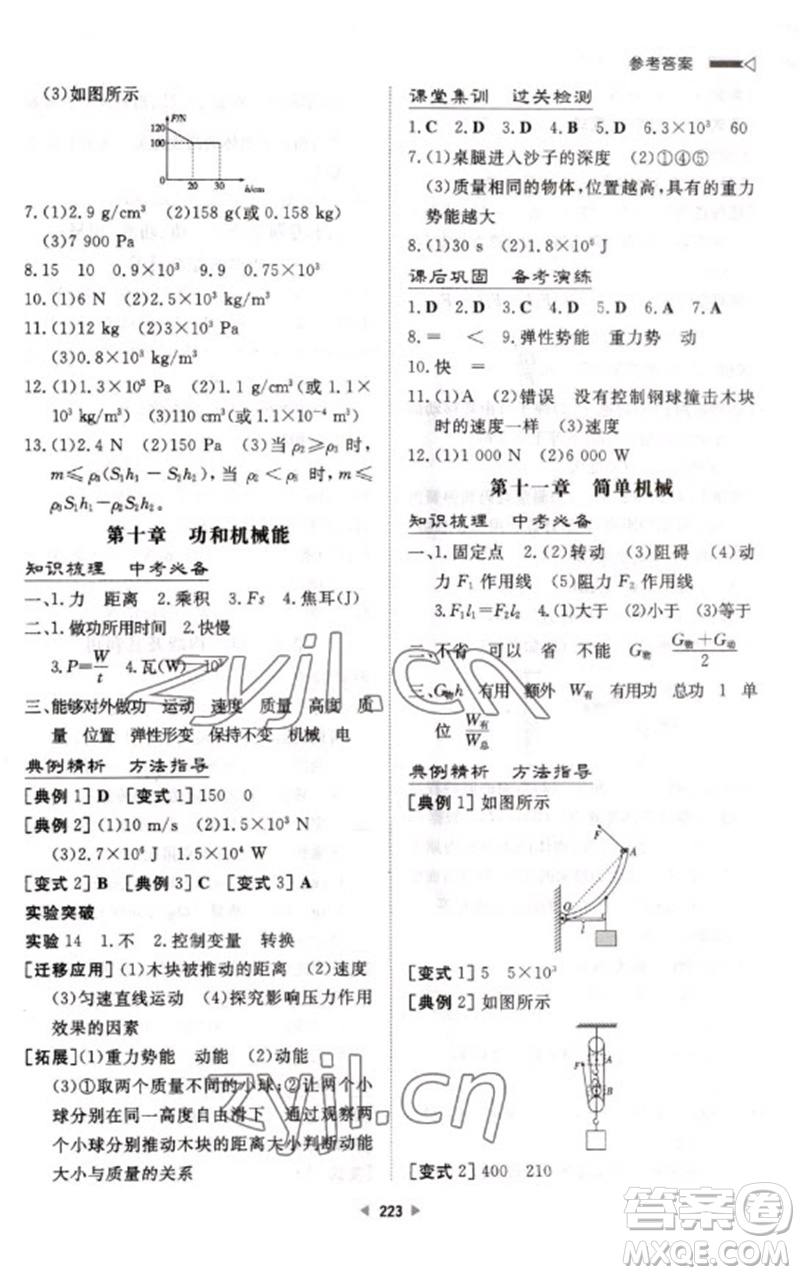 参考答案
(3)如图所示
F/N
120
100
0 20 30 h/cm
7.(1)2.9 g/cm³ (2)158 g(或 0.158 kg)
(3)7 900 Pa
8.15 10 0.9×10³ 9.9 0.75×10³
10.(1)6 N (2)2.5×10³ kg/m³
11.(1)1×10³ Pa (2)2×10³ Pa
(3)0.8×10³ kg/m³
12.(1)1.3×10³ Pa (2)1.3 g/cm³(或 1.3×
10³ kg/m³) (3)110 cm³(或 1.1×10⁻⁴ m³)
13.(1)2.4 N (2)150 Pa (3)当 ρ₂≥ρ₃ 时，
m≤ρ₃(S₁h₁−S₂h₂)；当 ρ₂＜ρ₃ 时，m≤
ρ₃S₁h₁−ρ₂S₂h₂。
第十章 功和机械能
知识梳理 中考必备
一、1.力 距离 2.乘积 3.Fs 4.焦耳(J)
二、1.做功所用时间 2.快慢
3.P=W/t 4.瓦(W) 10³
三、能够对外做功 运动 速度 质量 高度 质
量 位置 弹性形变 保持不变 机械 电
典例精析 方法指导
[典例 1]D [变式 1]150 0
[典例 2](1)10 m/s (2)1.5×10³ N
(3)2.7×10⁶ J 1.5×10⁴ W
[变式 2]B [典例 3]C [变式 3]A
实验突破
实验 14 1.不 2.控制变量 转换
[迁移应用](1)木块被推动的距离 (2)速度
(3)匀速直线运动 (4)探究影响压力作用
效果的因素
[拓展](1)重力势能 动能 (2)动能
(3)①取两个质量不同的小球；②让两个小
球分别在同一高度自由滑下 通过观察两
个小球分别推动木块的距离大小判断动能
大小与质量的关系
课堂集训 过关检测
1.C 2.D 3.D 4.B 5.D 6.3×10³ 60
7.(1)桌腿进入沙子的深度 (2)①④⑤
(3)质量相同的物体，位置越高，具有的重力
势能越大
8.(1)30 s (2)1.8×10⁶ J
课后巩固 备考演练
1.D 2.D 3.C 4.D 5.D 6.A 7.A
8.= ＜ 9.弹性势能 重力势 动
10.快 =
11.(1)A (2)错误 没有控制钢球撞击木块
时的速度一样 (3)速度
12.(1)1 000 N (2)6 000 W
第十一章 简单机械
知识梳理 中考必备
一、1.固定点 2.(2)转动 (3)阻碍 (4)动
力 F₁ 作用线 (5)阻力 F₂ 作用线
3.F₁l₁=F₂l₂ (1)大于 (2)小于 (3)等于
二、不省 可以 省力 不能 G物 (G物+G动)/2
三、G物h 有用 额外 W有 有用功 总功 1 单
位 W有/W总
典例精析 方法指导
[典例 1]如图所示
F
A
O
l
[变式 1]5 5×10³
[典例 2]如图所示
A
F
[变式 2]400 210
223
zyjl.cn
zyjl.cn
答案圈
MXQE.COM